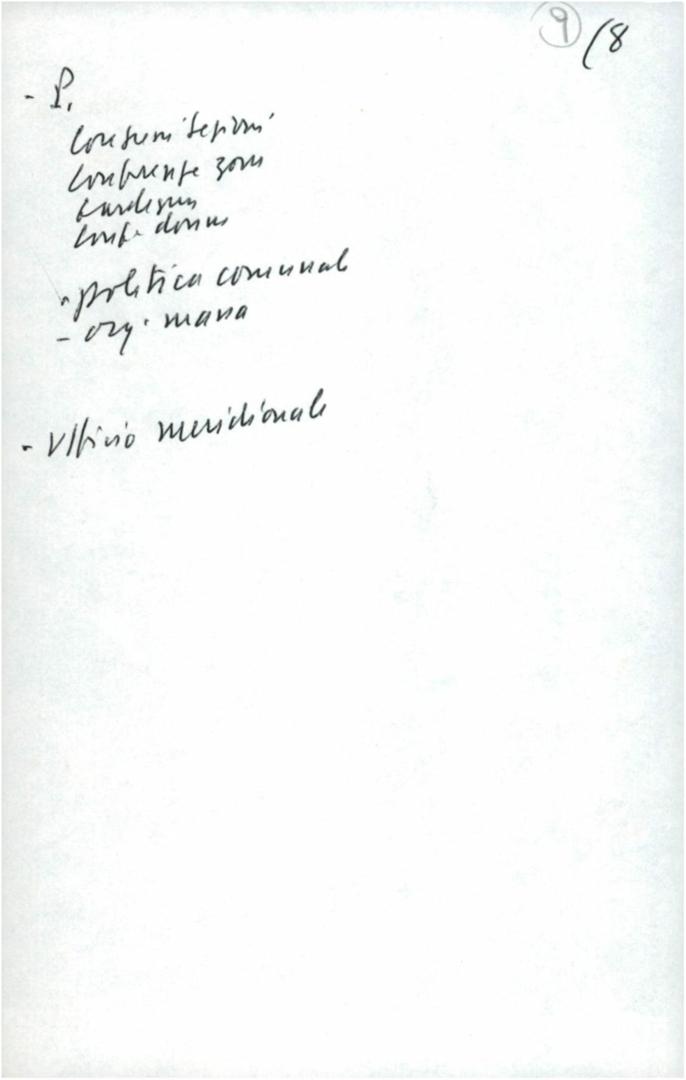 9 /8
- P.
Congressi sezioni
Conferenze zone
Conf. donne
- politica comunale
- org. massa
- Ufficio meridionale